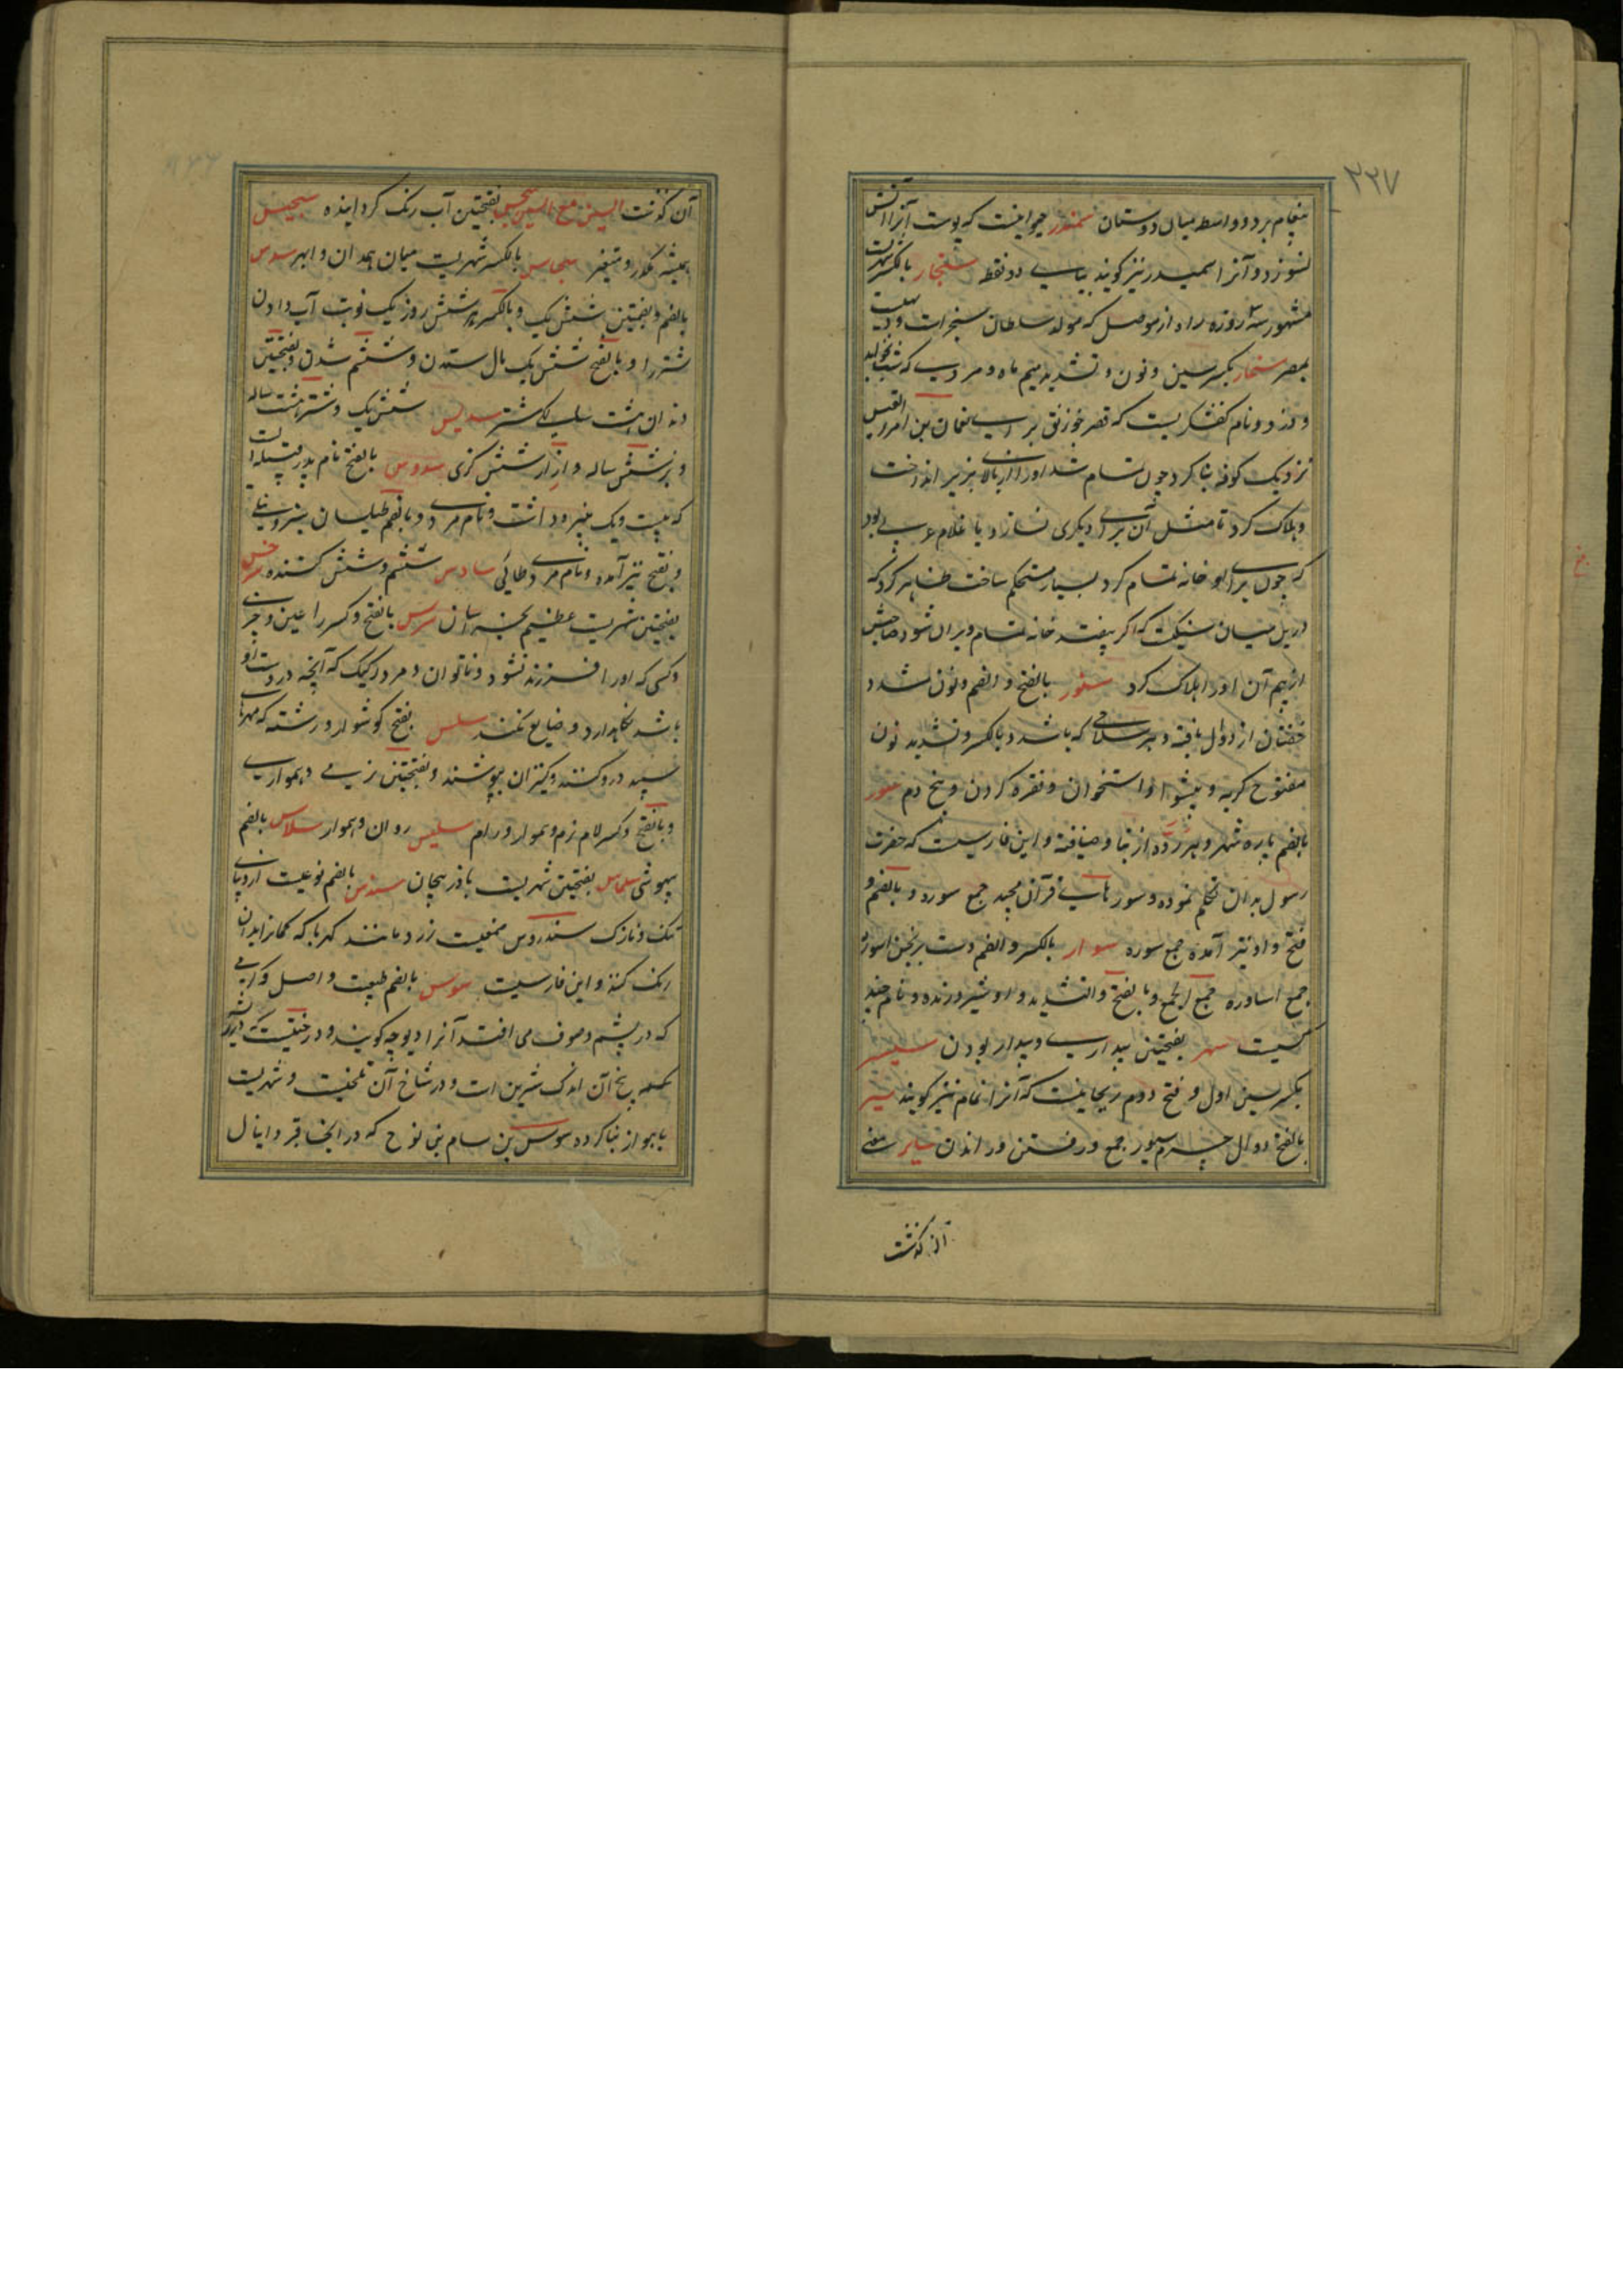 ۲۲۷
پیغام برد و واسطه میان دوستان سمندر حیوانیست که پوست آنرا آتش
نسوزد و آنرا سمیدر نیز گویند بیای دو نقطه سنجار بالکسر شهریست
مشهور سه روزه راه از موصل که مولد سلطان سنجر است و دیهیست
بمصر سنمار بکسر سین و نون و تشدید میم ماه و مردی که شب نخوابد
و دزد و نام کفشگریست که قصر خورنق برای نعمان بن امرء القیس
نزدیک کوفه بنا کرد چون تمام شد او را از بالای بزیر انداخت
و هلاک کرد تا مثل آن برای دیگری نسازد یا غلام عربی بود
که چون برای او خانه تمام کرد بسیار مستحکم ساخت ظاهر کرد که
درین میان سنگیست که اگر بیفتد خانه تمام ویران شود صاحبش
از بیم آن او را هلاک کرد سنور بالفتح و الضم و نون مشدد
خفتان از دوال بافته و هر سلاحی که باشد و بالکسر و تشدید نون
مفتوح گربه و پیشوا و استخوان و فقره گردن و بیخ دم سور
بالضم باره شهر و هر رده از بنا و ضیافة و این فارسیست که حضرت
رسول بدان تکلم نموده و سورهای قرآن مجید جمع سوره و بالضم و
فتح واو نیز آمده جمع سوره سوار بالکسر و الضم دست برنجن اسوره
جمع اساوره جمع الجمع و بالفتح والتشدید واو شیر درنده و نام چند
کسیت سهر بفتحتین بیداری و بیدار بودن سیسنبر
بکسر سین اول و فتح دوم ریحانیست که آنرا نمام نیز گویند سیر
بالفتح دوال چرم سیور جمع و رفتن و راندن سایر معنی
آن گذشت
آن گذشت السین مع السین سجس بفتحتین آب رنک گردانیده سجیس
همیشه مکدر و متغیر سجاس بالکسر شهریست میان همدان و ابهر سدس
بالضم و بضمتین شش یک و بالکسر هر شش روز یک نوبت آب دادن
شتر را و بالفتح شش یک مال ستدن و ششم شدن و بفتحتین
دندان هشت سالگی شتر سدیس شش یک و شتر هشت ساله
و بز شش ساله و ازار شش گزی سدوس بالفتح نام پدر قبیله است
که بیست و یک پسر داشت و نام مردی و بالضم طیلسان سبز و نیلی
و بفتح نیز آمده و نام مردی طائی سادس ششم و شش کننده سرخس
بفتحتین شهریست عظیم بخراسان سرس بالفتح و کسر را عنین و خری
و کسی که او را فرزند نشود و ناتوان و مرد زیرک که آنچه در دست او
باشد نگاهدارد و ضایع نکند سلس بفتح گوشوار و رشته که مهرهای
سپید در و کنند و کنیزان بپوشند و بفتحتین نرمی و همواری
و بالفتح و کسر لام نرم و هموار و رام سلیس روان و هموار سلاس بالضم
بیهوشی سلماس بفتحتین شهریست باذربیجان سندس بالضم نوعیست از دیبای
تنک و نازک سندروس صمغیست زرد مانند کهربا که کمانرا بدان
رنک کنند و این فارسیست سوس بالضم طبیعت و اصل و کرمی
که در پشم و صوف می افتد آنرا دیوچه گویند و درختیست
که بیخ آن اندک شیرین است و در شاخ آن تلخیست و شهریست
باهواز بنا کرده سوس بن سام بن نوح که در آنجا قبر دانیال